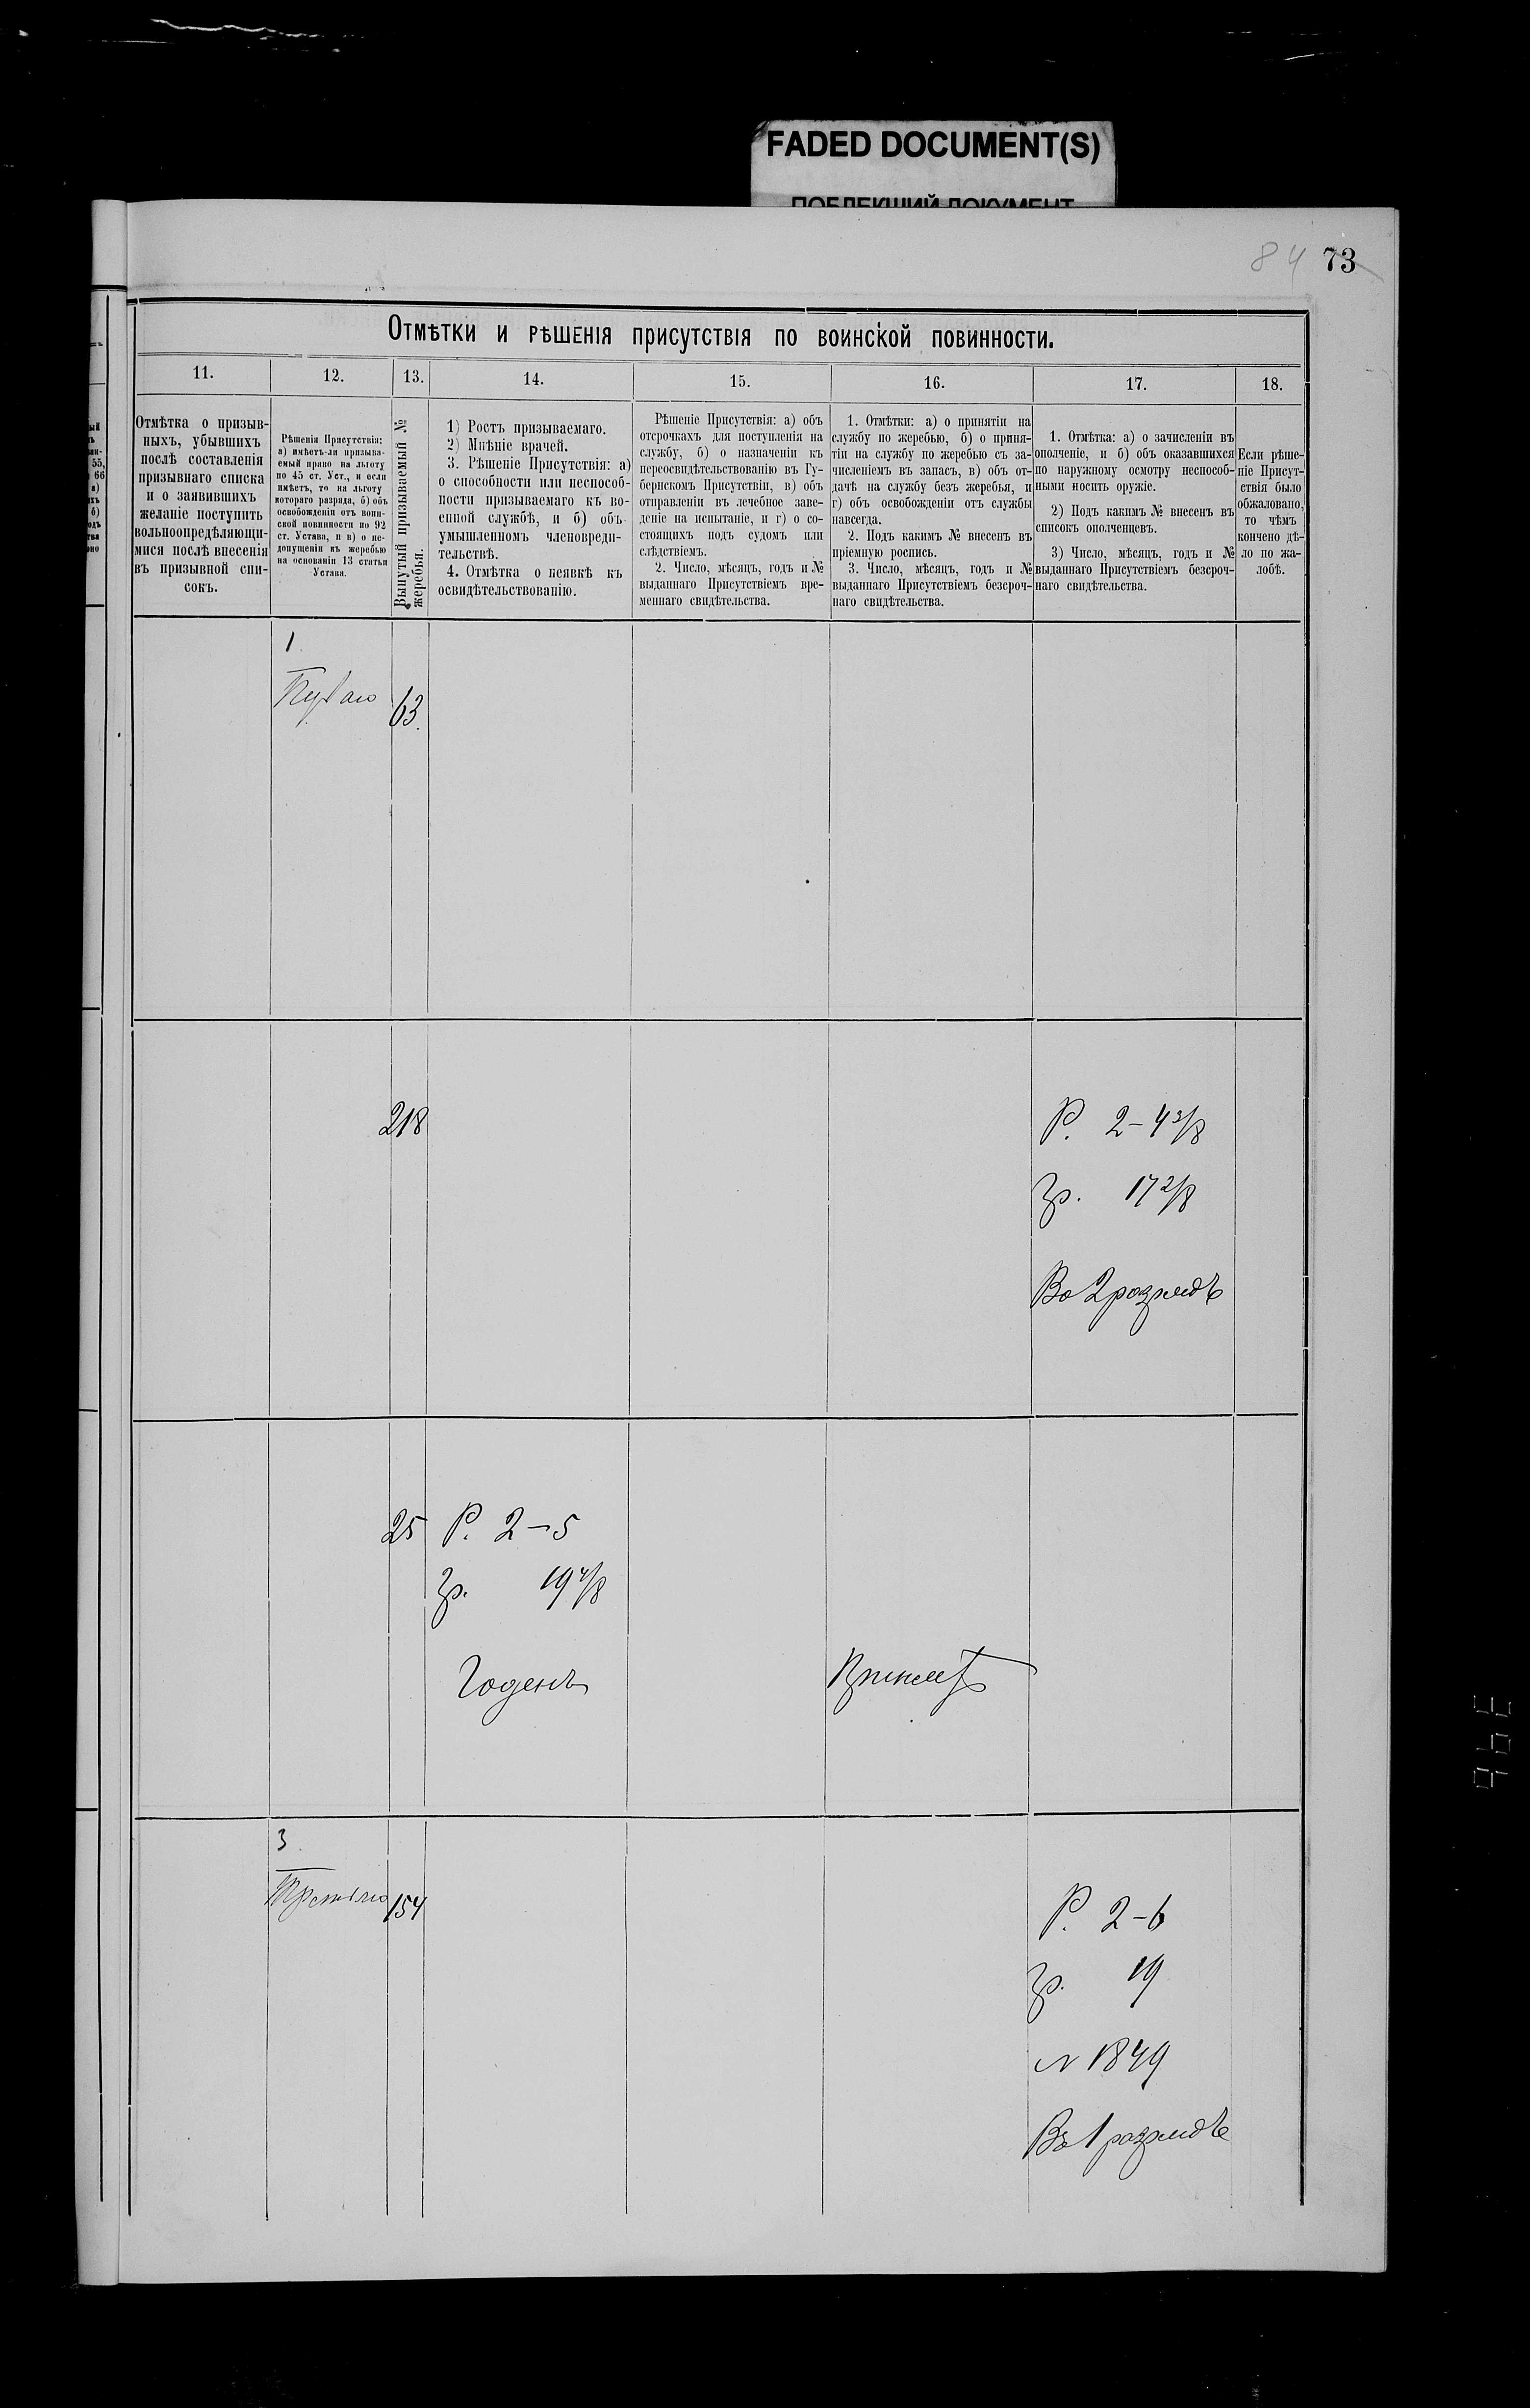 FADED DOCUMENT(S)
ПОБЛЕКШИЙ ДОКУМЕНТ
84 73
Отмѣтки и рѣшенія присутствія по воинской повинности.
11.
12.
13.
14.
15.
16.
17.
18.
Отмѣтка о призыв-
ныхъ, убывшихъ
послѣ составленія
призывнаго списка
и о заявившихъ
желаніе поступить
вольноопредѣляющи-
мися послѣ внесенія
въ призывной спи-
сокъ.
Рѣшенія Присутствія:
а) имѣетъ-ли призыва-
емый право на льготу
по 45 ст. Уст., и если
имѣетъ, то на льготу
котораго разряда, б) объ
освобожденіи отъ воин-
ской повинности по 92
ст. Устава, и в) о не-
допущеніи къ жеребью
на основаніи 13 статьи
Устава.
Вынутый призываемый №
жеребья.
1) Ростъ призываемаго.
2) Мнѣніе врачей.
3. Рѣшеніе Присутствія: а)
о способности или неспособ-
ности призываемаго къ во-
енной службѣ, и б) объ
умышленномъ членовреди-
тельствѣ.
4. Отмѣтка о неявкѣ къ
освидѣтельствованію.
Рѣшеніе Присутствія: а) объ
отсрочкахъ для поступленія на
службу, б) о назначеніи къ
переосвидѣтельствованію въ Гу-
бернскомъ Присутствіи, в) объ
отправленіи въ лечебное заве-
деніе на испытаніе, и г) о со-
стоящихъ подъ судомъ или
слѣдствіемъ.
2. Число, мѣсяцъ, годъ и №
выданнаго Присутствіемъ вре-
меннаго свидѣтельства.
1. Отмѣтки: а) о принятіи на
службу по жеребью, б) о приня-
тіи на службу по жеребью съ за-
численіемъ въ запасъ, в) объ от-
дачѣ на службу безъ жеребья, и
г) объ освобожденіи отъ службы
навсегда.
2. Подъ какимъ № внесенъ въ
пріемную роспись.
3. Число, мѣсяцъ, годъ и №
выданнаго Присутствіемъ безсроч-
наго свидѣтельства.
1. Отмѣтка: а) о зачисленіи въ
ополченіе, и б) объ оказавшихся
по наружному осмотру неспособ-
ными носить оружіе.
2) Подъ какимъ № внесенъ въ
списокъ ополченцевъ.
3) Число, мѣсяцъ, годъ и №
выданнаго Присутствіемъ безсроч-
наго свидѣтельства.
Если рѣше-
ніе Присут-
ствія было
обжаловано,
то чѣмъ
кончено дѣ-
ло по жа-
лобѣ.
1
63.
218
Р. 2–4 3/8
Гр. 17 2/8
Во 2 разрядъ
25
Р. 2–5
Гр. 19 4/8
Годенъ
Принятъ
3.
154
Р. 2–6
Гр. 19
N 1849
Въ 1 разрядъ
396